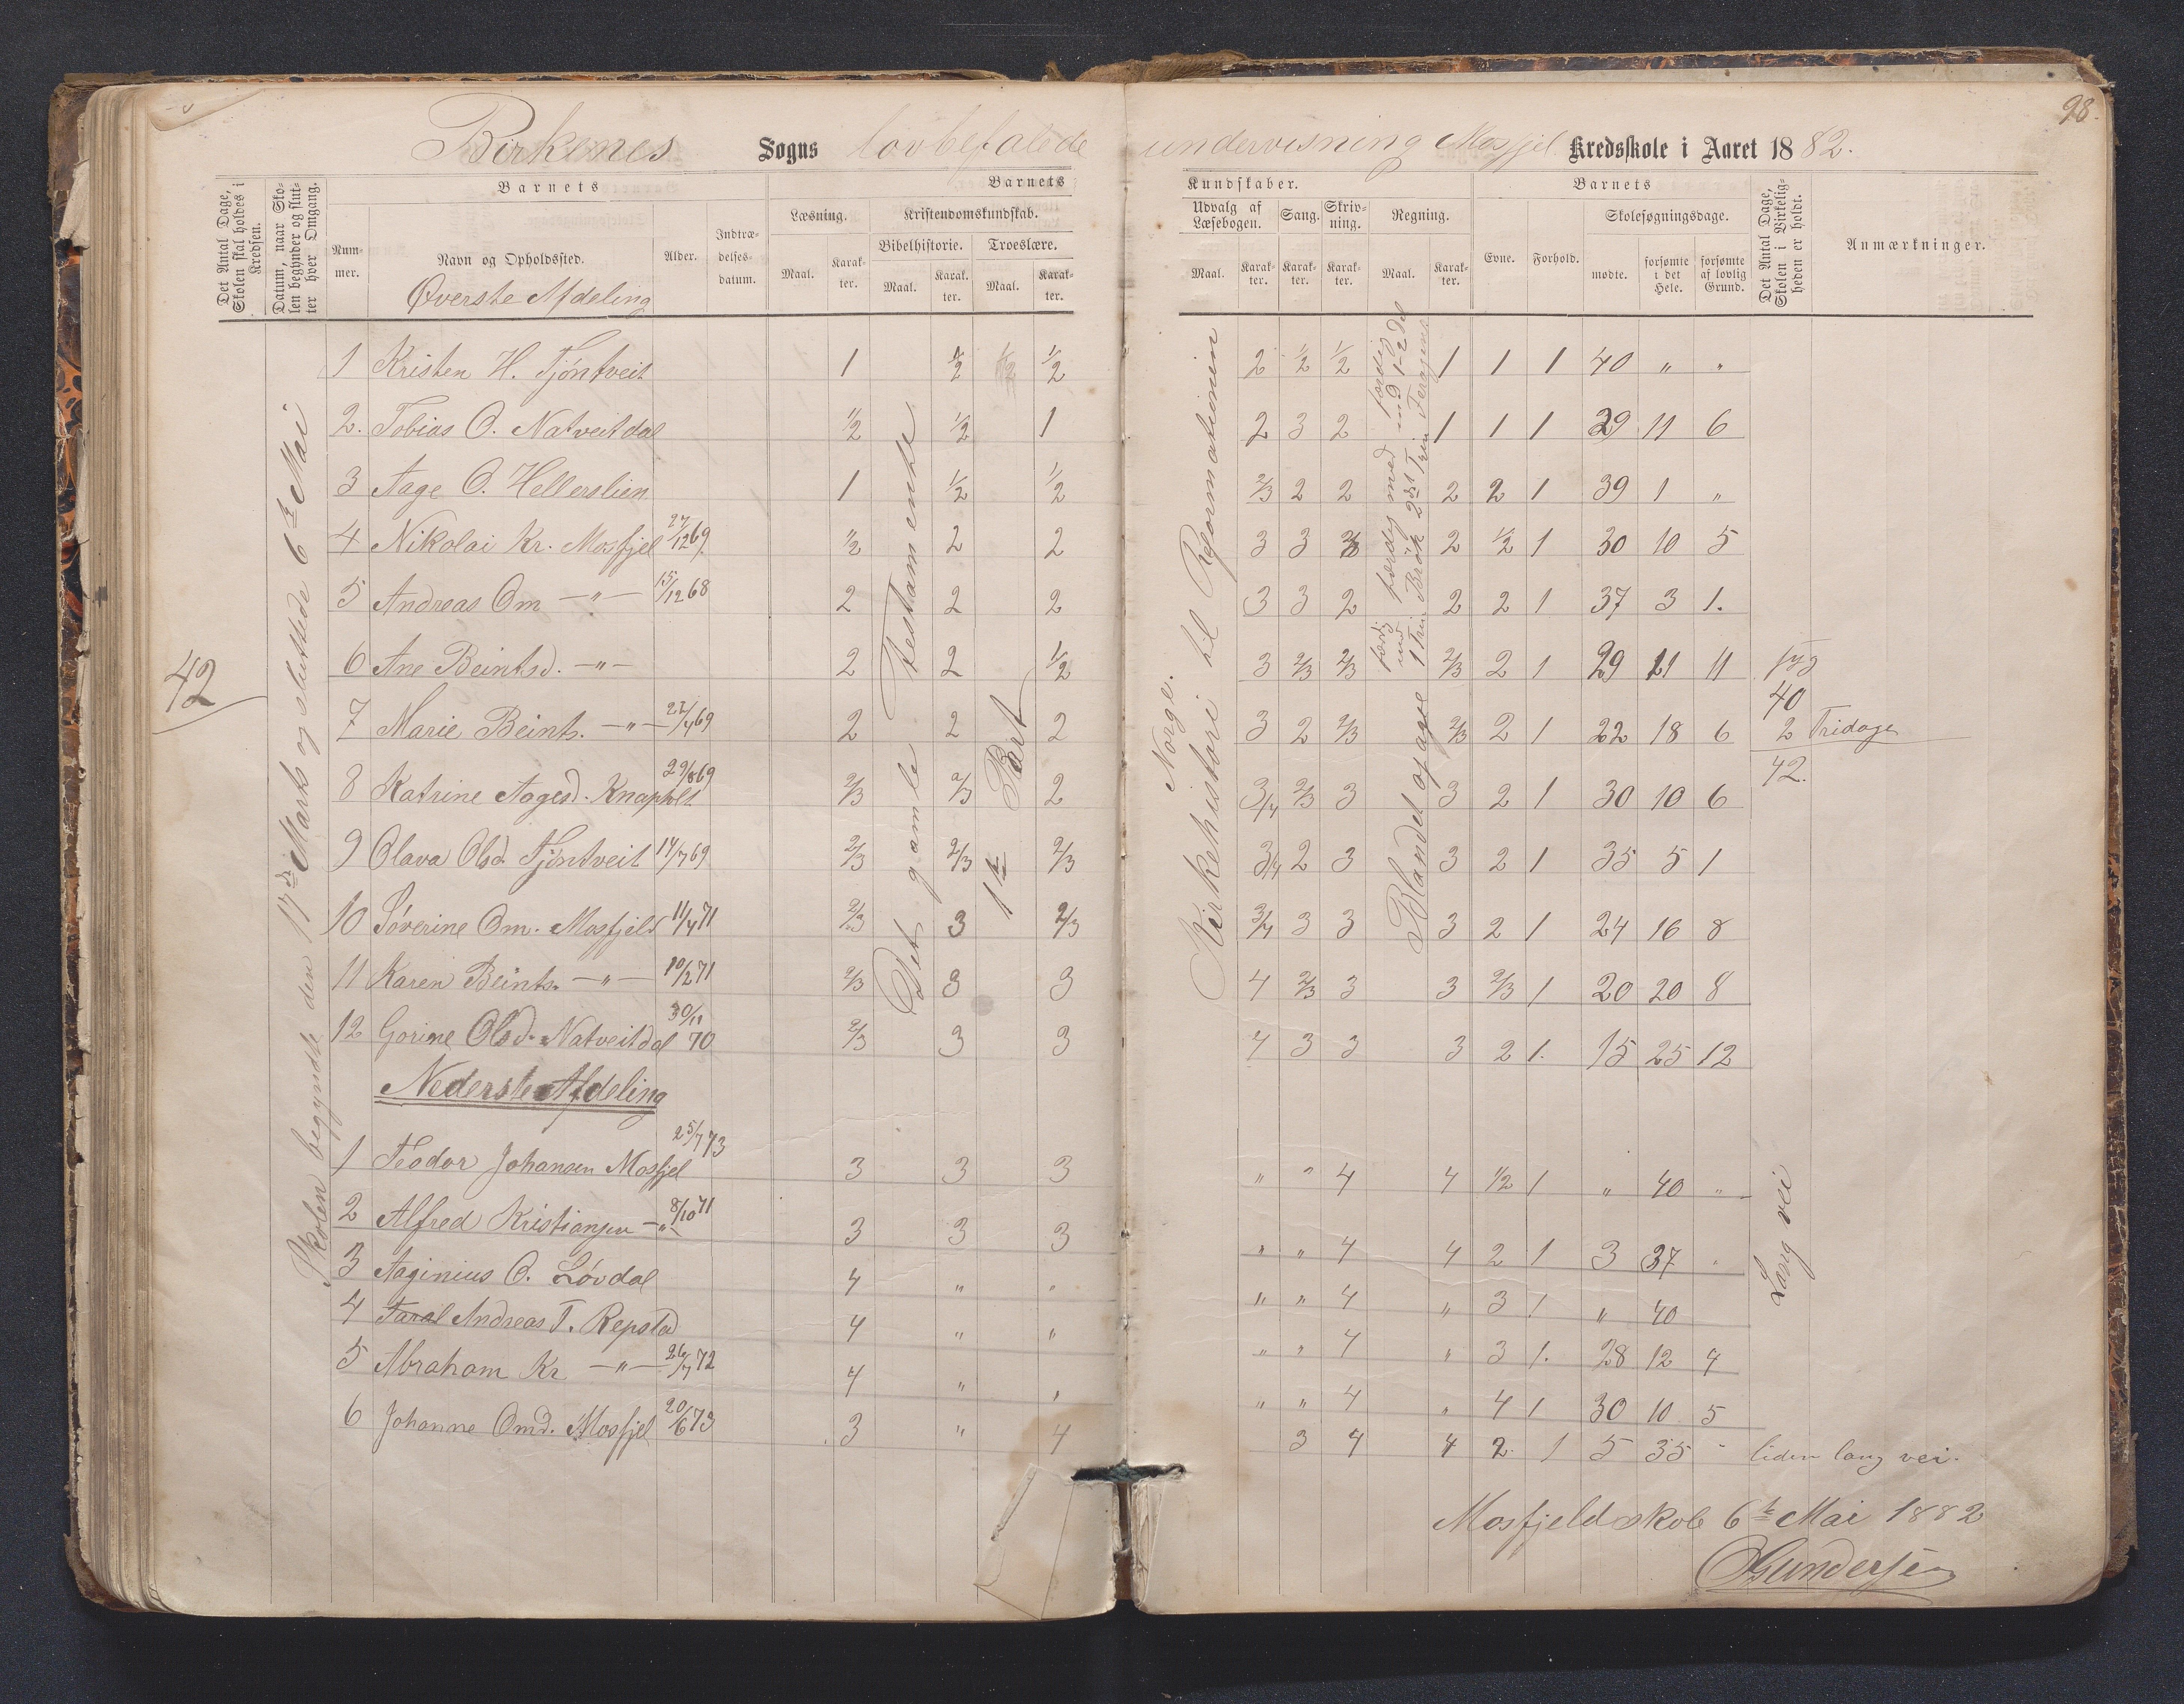 98.
Birkenes Sogns lovbefalede undervisning Mosfjel Kredsskole i Aaret 1882.
Det Antal Dage, Skolen skal holdes i Kredsen.
Datum, naar Skolen begynder og slutter hver Omgang.
Barnets
Nummer.
Navn og Opholdssted.
Alder.
Indtrædelsesdatum.
Barnets Kundskaber.
Læsning.
Maal. Karakter.
Kristendomskundskab.
Bibelhistorie.
Maal. Karakter.
Troeslære.
Maal. Karakter.
Udvalg af Læsebogen.
Maal. Karakter.
Sang.
Karakter.
Skrivning.
Karakter.
Regning.
Maal. Karakter.
Barnets
Evne. Forhold.
Skolesøgningsdage.
mødte. forsømte i det Hele. forsømte af lovlig Grund.
Det Antal Dage, Skolen i Virkeligheden er holdt.
Anmærkninger.
Øverste Afdeling
42
Skolen begyndte den 17de Marts og sluttede 6te Mai
Det gamle Testamente
1te Part
Norge.
Kirkehistorie til Reformationen
Blandet opgave
1 Kristen H. Tjöntveit 1 1/2 1/2 2 1/2 1/2 1 1 1 40 " "
2. Tobias O. Natveitdal 1/2 1/2 1 2 3 2 1 1 1 29 11 6
3 Aage O. Hellerslien 1 1/2 1/2 2/3 2 2 2 2 1 39 1 "
4 Nikolai Kr. Mosfjel 27/12 69. 1/2 2 2 3 3 2 1/2 1 30 10 5
5 Andreas Om — " — 15/12 68 2 2 2 3 3 2 2 2 1 37 3 1.
6 Ane Beintsd. — " — 2 2 1/2 3 2/3 2/3 2/3 2 1 29 11 11
7 Marie Beints. — " — 22/4 69 2 2 2 3 2 2/3 2/3 2 1 22 18 6
40
2 Fridage
42.
8 Katrine Aagesd. Knapholt 29/8 69 2/3 2/3 2 3/4 2/3 3 3 2 1 30 10 6
9 Olava Olsd. Tjöntveit 14/7 69 2/3 2/3 2/3 3/4 2 3 3 2 1 35 5 1
10 Söverine Om. Mosfjeld 11/4 71 2/3 3 2/3 3/4 3 3 3 2 1 24 16 8
11 Karen Beints. — " — 10/2 71 2/3 3 3 4 2/3 3 3 2/3 1 20 20 8
12 Gorine Olsd. Natveitdal 30/11 70 2/3 3 3 4 3 3 3 2 1. 15 25 12
Nederste Afdeling
1 Teodor Johansen Mosfjel 25/7 73 3 3 3 " " 4 4 1/2 1 " 40 "
2 Alfred Kristiansen — " — 8/10 71 3 3 3 " " 4 4 2 1 3 37 "
3 Aaginius O. Lövdal 4 " " " " 4 " 3 1 " 40
4 Taral Andreas T. Repstad 4 " " " " 4 " 3 1. 28 12 4
5 Abraham Kr — " — 26/7 72 4 " " " " 4 " 4 1 30 10 5
6 Johanne Omd. Mosfjel 20/6 73 3 " 4 3 4 4 2 1 5 35 " liden lang vei.
Lang vei
Mosfjeld skole 6te Mai 1882
Gundersen